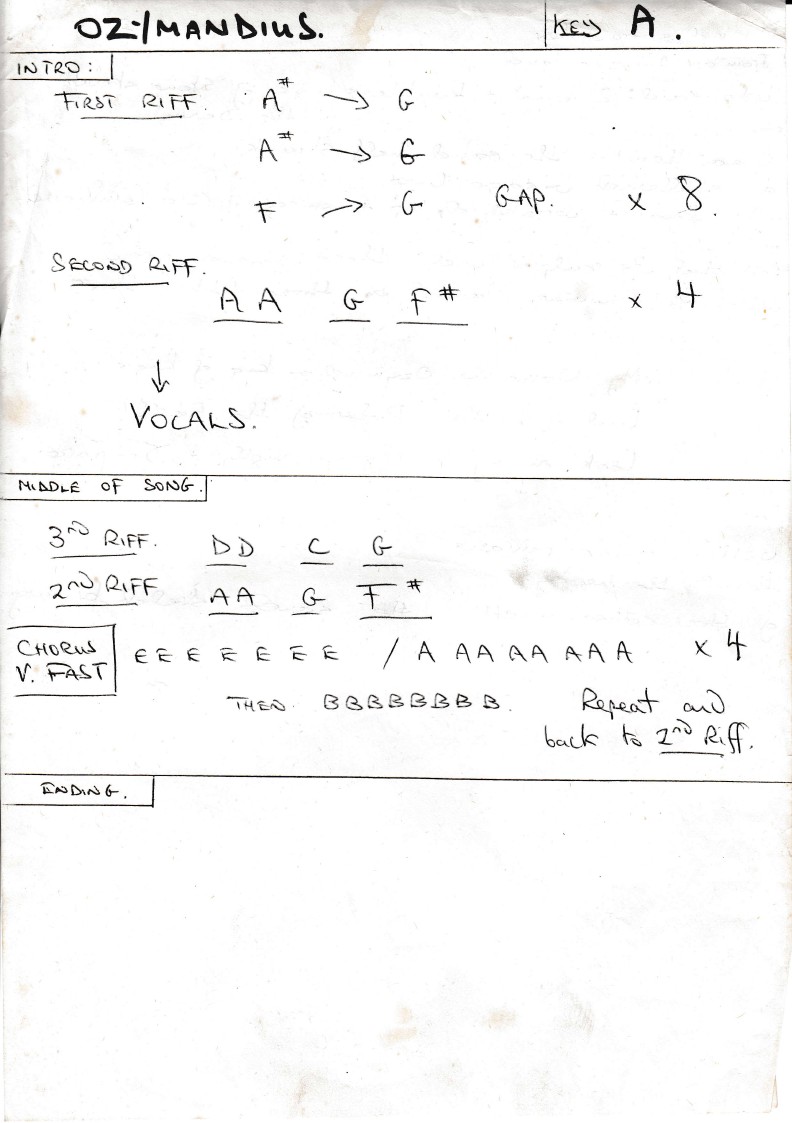 OZ-/MANDIUS. KEY A.
INTRO:
FIRST RIFF. A# → G
A# → G
F → G GAP. x 8.
SECOND RIFF.
A A G F# x 4
↓
VOCALS.
MIDDLE OF SONG.
3RD RIFF. DD C G
2ND RIFF AA G F#
CHORUS
V. FAST
E E E E E E E / A AA AA AAA x 4
THEN BBBBBBBB. Repeat and
back to 2nd Riff.
ENDING.